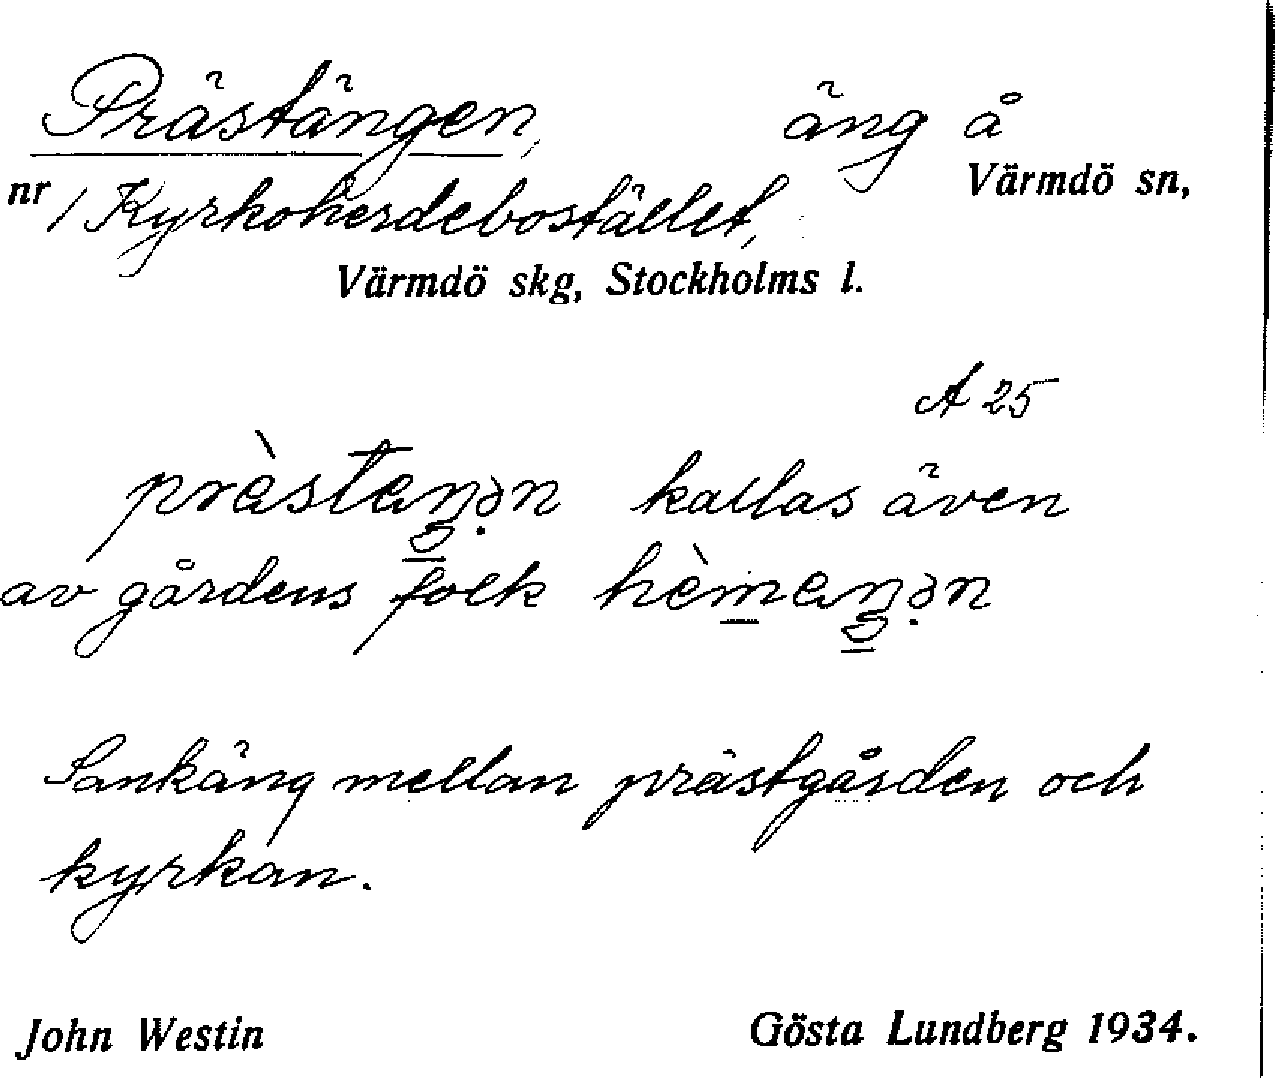 Prästängen, äng å
Värmdö sn,
nr 1 Kyrkoherdebostället,
Värmdö skg, Stockholms l.
A 25
kallas även
av gårdens folk
Sankäng mellan prästgården och
kyrkan.
John Westin Gösta Lundberg 1934.